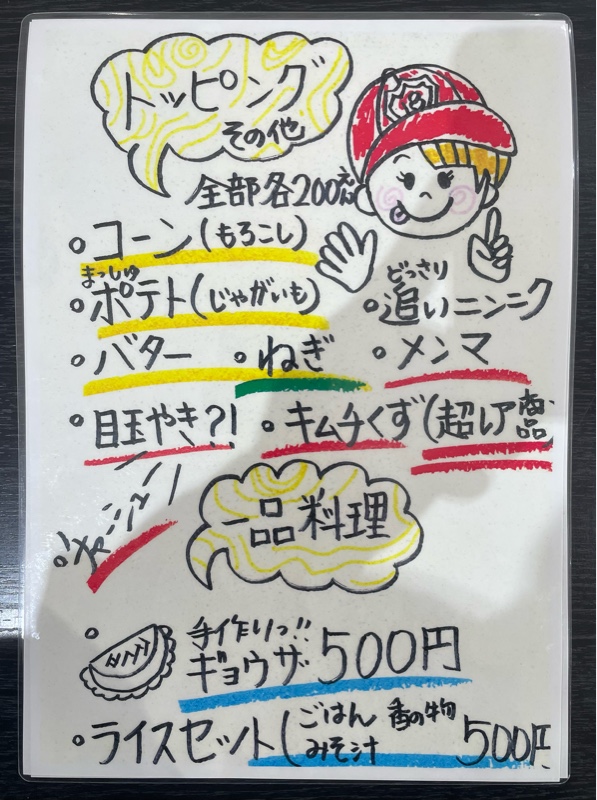 トッピング
その他
全部各200えん
・コーン(もろこし)
まっしゅ
・ポテト(じゃがいも)
どっさり
・追いニンニク
・バター
・ねぎ
・メンマ
・目玉やき?!
・キムチくず(超レア商品)
・チャーシュー
一品料理
手作りっ!!
・ギョウザ 500円
・ライスセット(ごはん 香の物
みそ汁 500円